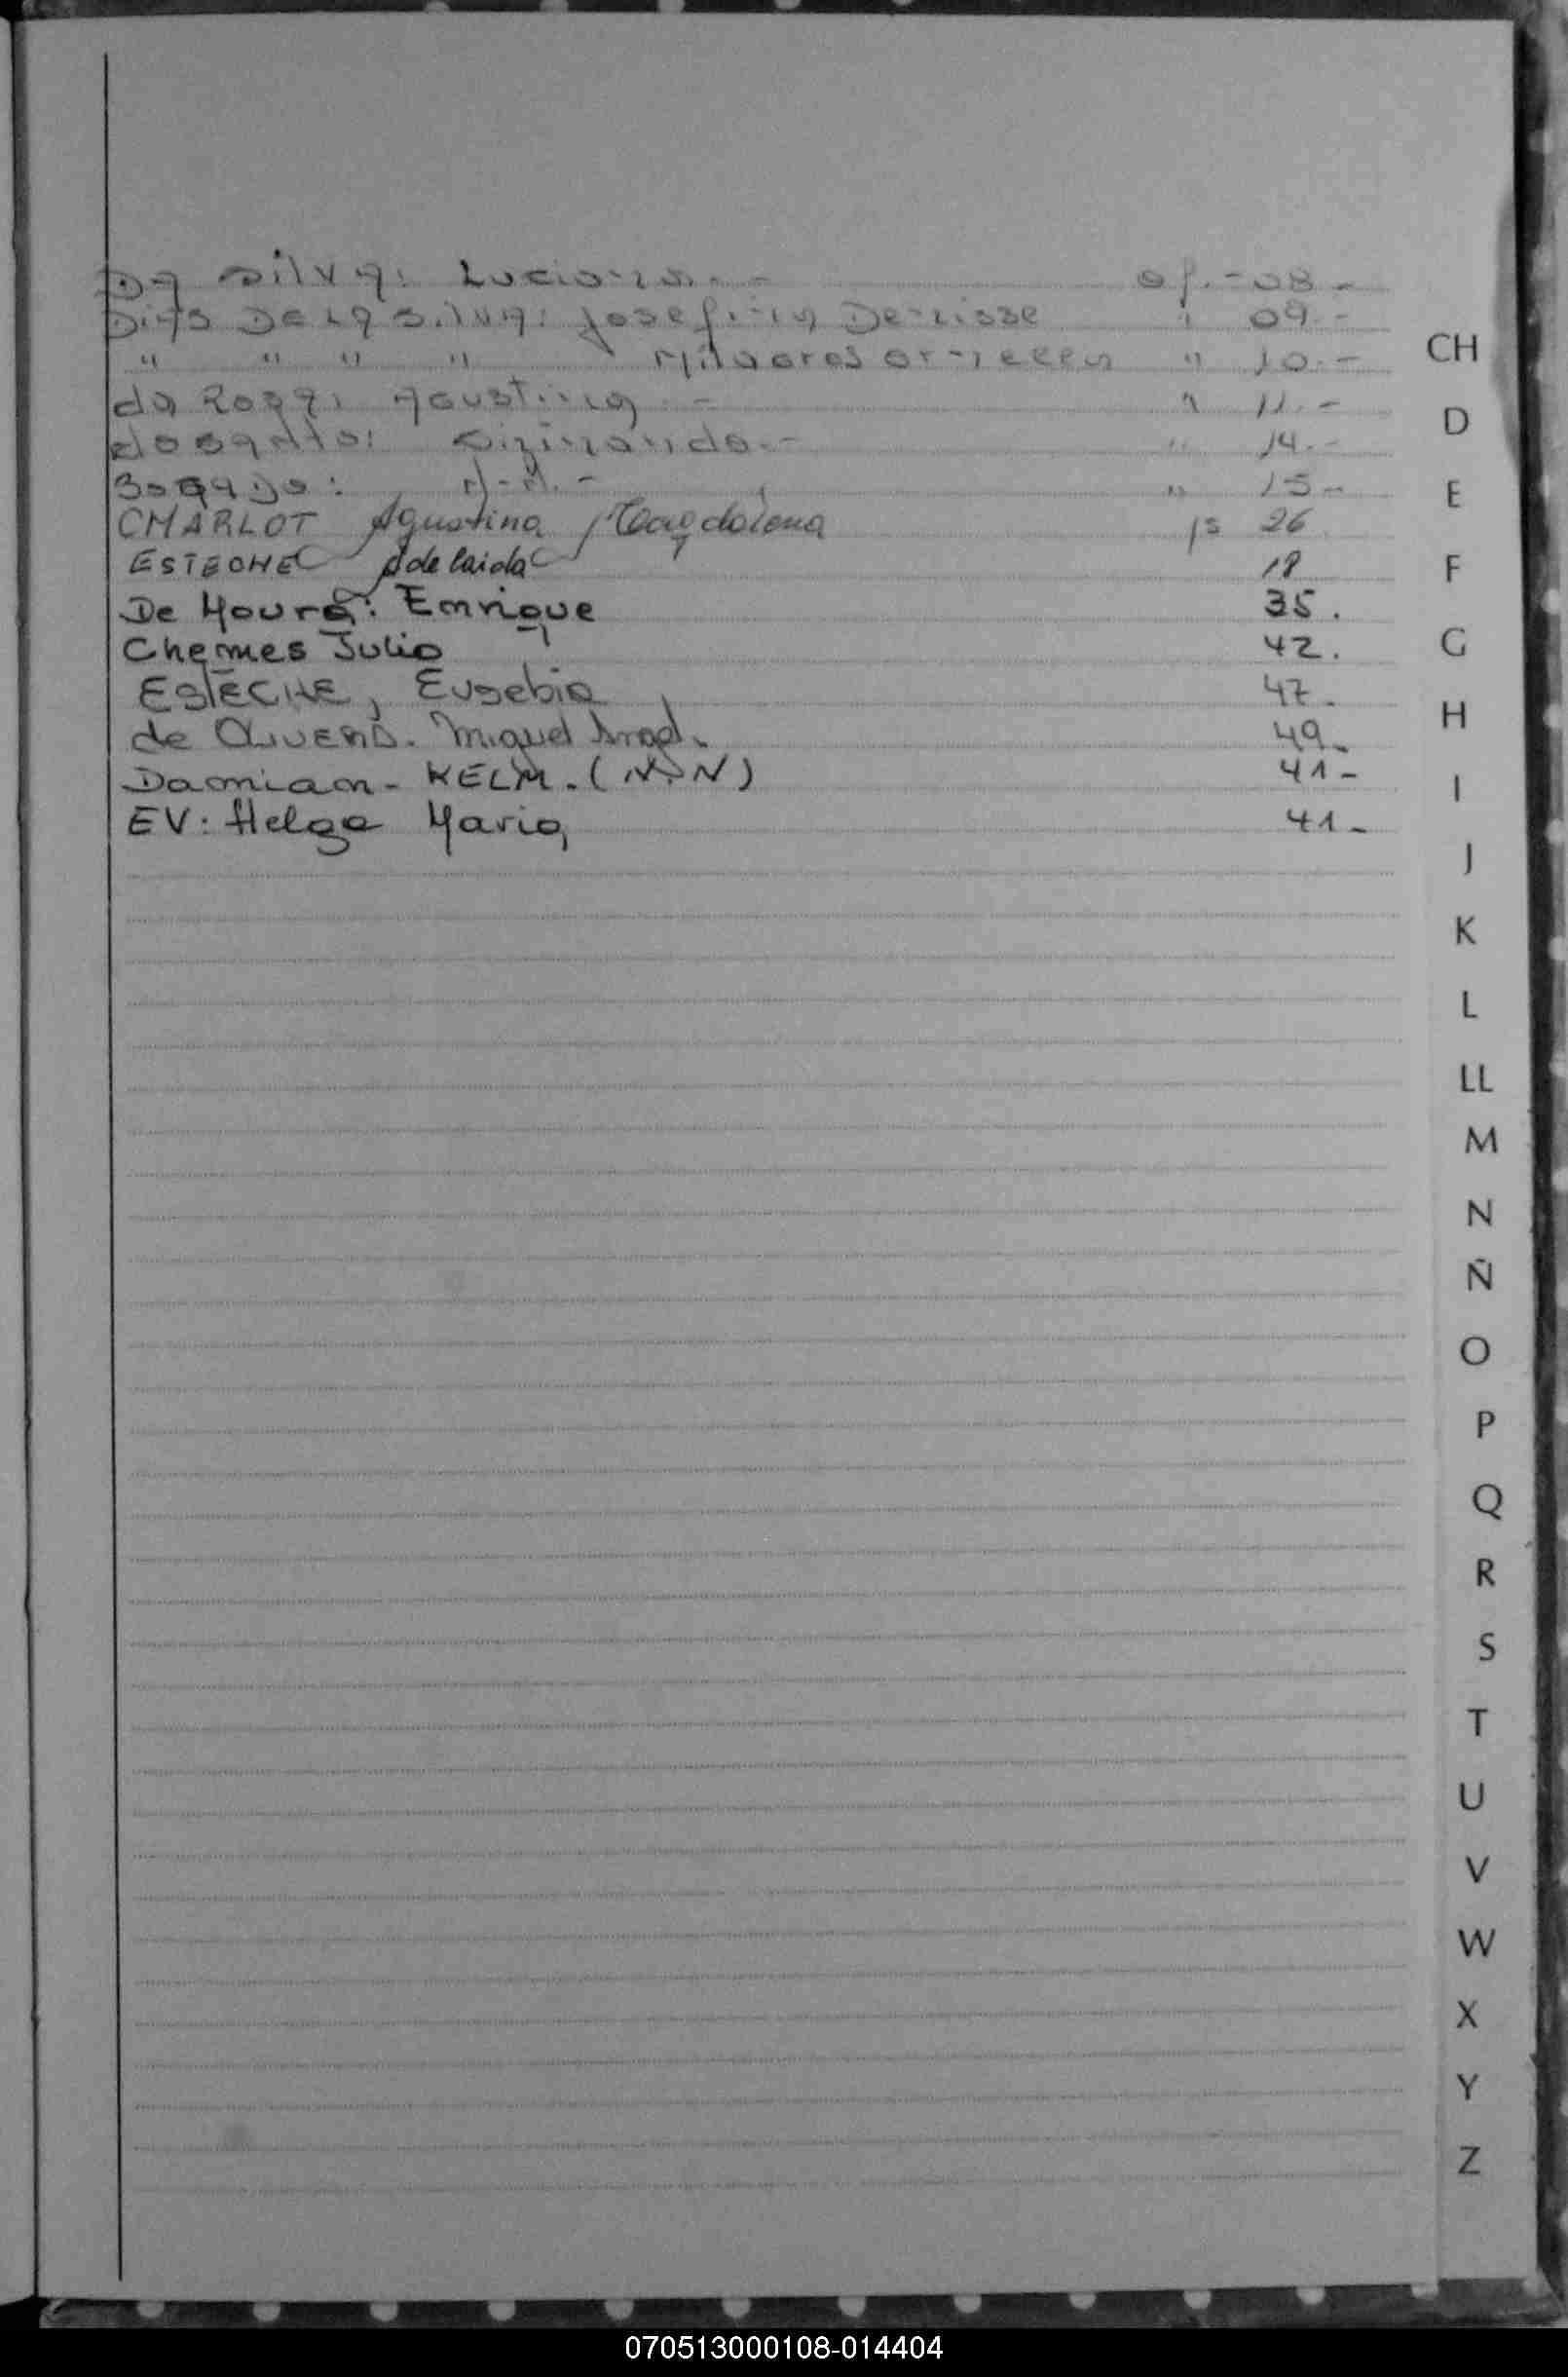 Da Silva: Luciana.- af.- 08.-
Dias De La Silva: Josefina Denisse " 09.-
" " " " Milagros " 10.-
da Rosa: Agustina.- " 11.-
dosanto: .- " 14.-
: N-N.- " 15.-
CHARLOT Agustina Magdalena fs 26
ESTECHE Adelaida 18
De Moura: Enrrique 35.
Chemes Julio 42.
ESTECHE, Eusebia 47.
de Olivera. Miguel Angel. 49.
Damian - KELM. (N.N) 41-
EV: Helga Maria 41-
CH
D
E
F
G
H
I
J
K
L
LL
M
N
Ñ
O
P
Q
R
S
T
U
V
W
X
Y
Z
070513000108-014404